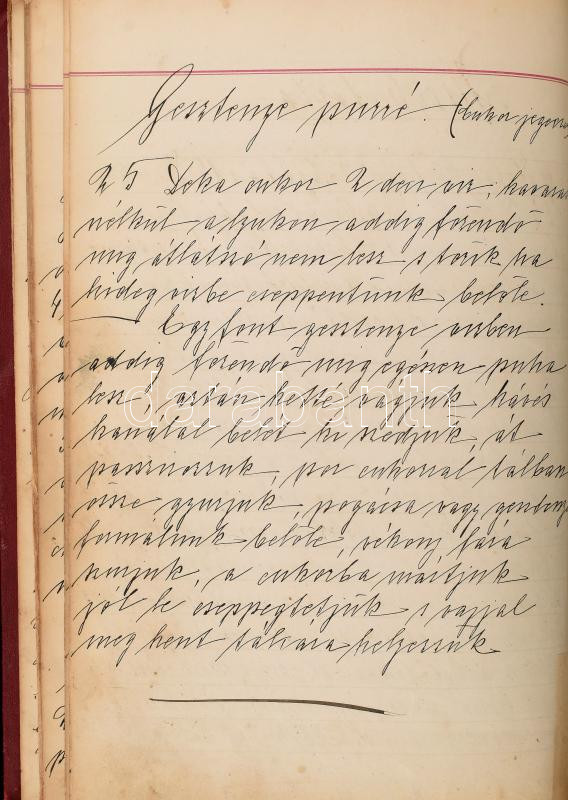 Gesztenye purré. (Cukor jegecz
25 Deka cukor 2 decz viz, kavarás
nélkül a tzukor addig főzendő
mig átlátszó nem lesz s törik ha
hideg vizbe cseppentünk belőle.
Egy font gesztenye vizben
addig főzendő mig egészen puha
lesz, aztan ketté vagjuk kávés
kanállal belét ki szedjük, át
passzirozzuk, por cukorral tálban
össze gyurjuk, pogácsa vagy
formálunk belőle, vékony fára
szurjuk, a cukorba mártjuk
jól le cseppegtetjük s vajjal
meg kent tálczára helyezzük
darabanth